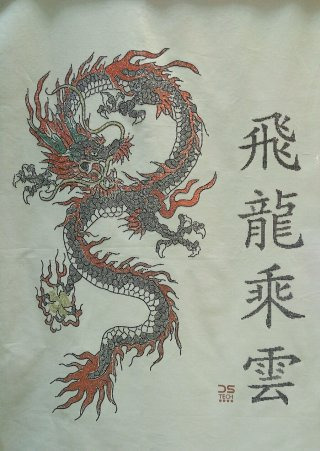 飛龍乘雲
DS
TECH